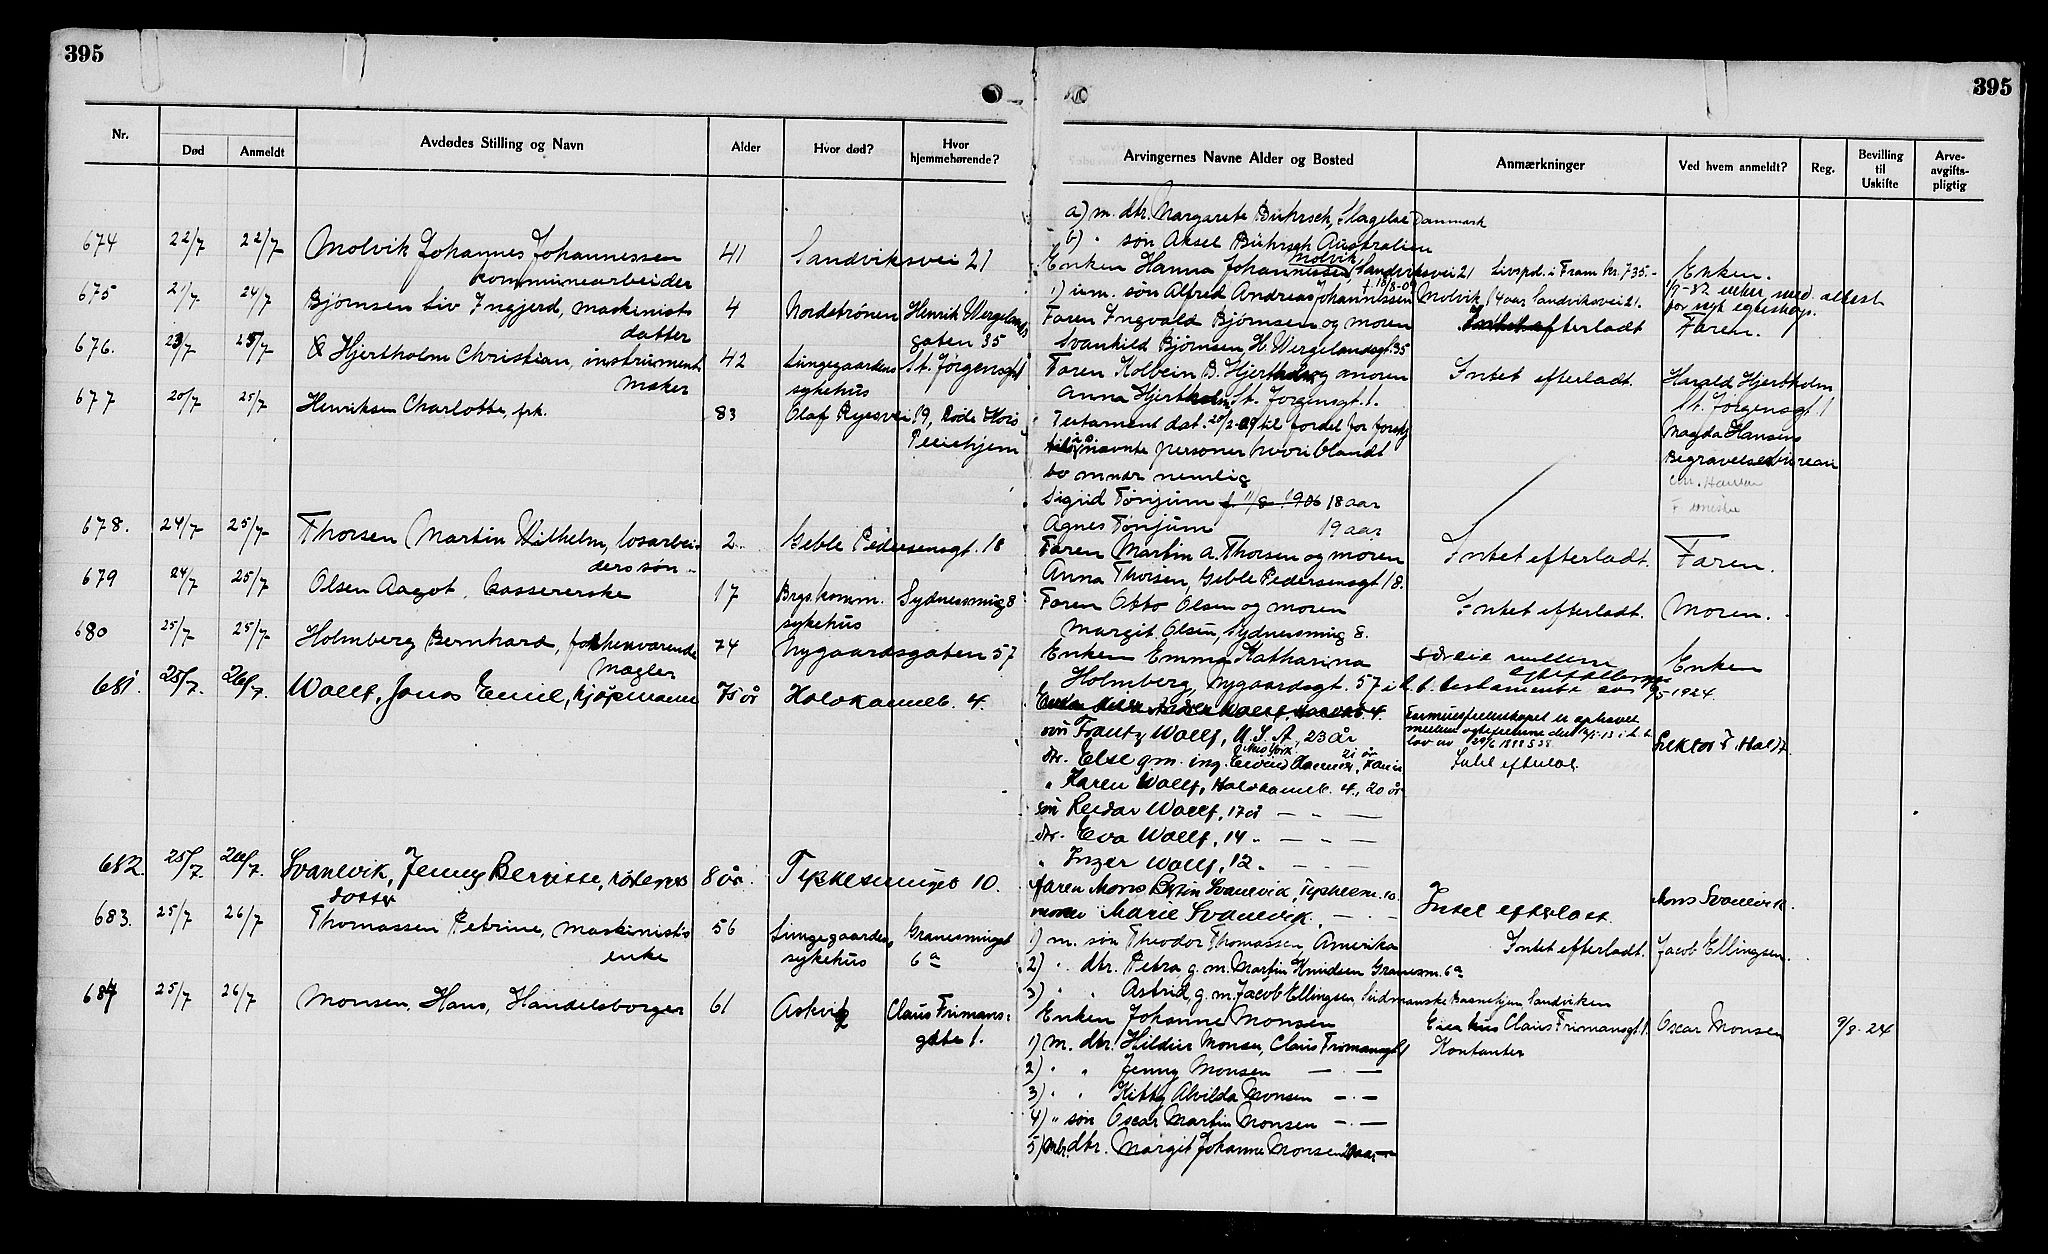 395
395
Nr.
Død
Anmeldt
Avdødes Stilling og Navn
Alder
Hvor død?
Hvor hjemmehørende?
Arvingernes Navne Alder og Bosted
Anmærkninger
Ved hvem anmeldt?
Reg.
Bevilling til Uskifte
Arveavgiftspligtig
a) m. dtr. Margarete Bührsch, Slagelse Danmark
b) " søn Aksel Bührsch Australien
674 22/7 22/7 Molvik Johannes Johannessen 41 Sandviksvei 21
kommunearbeider
Molvik
Enken Hanna Johannessen, Sandviksvei 21 Livspol. i Fram kr. 735.- Enken.
1) um. søn Alfred Andreas Johannessen Molvik, 14 aar Sandviksvei 21.
for nyt egteskap.
675 21/7 24/7 Bjørnsen Liv Ingjerd, maskinists 4 Nordströnen Henrik Wergelands
datter gaten 35
Faren Ingvald Bjørnsen og moren Intet efterladt Faren.
Svanhild Bjørnsen, H. Wergelandsgt. 35
676. 23/7 25/7 Hjertholm Christian, instrument 42 Lungegaardens St. Jørgensgt 1
maker sykehus
Faren Kolbein B. Hjertholm og moren Intet efterladt. Harald Hjertholm
Anna Hjertholm, St. Jørgensgt. 1. St. Jørgensgt 1
677 20/7 25/7 Henriksen Charlotte, frk. 83 Olaf Ryesvei 19, Röde Kors
Pleiehjem
Testament dat. 20/2-09 til fordel for forskj
nævnte personer hvoriblandt
to mindr nemlig
Magda Hansens
Begravelsesbureau
Sigrid Tønjum f. 11/8 1906 18 aar
Agnes Tønjum 19 aar
678. 24/7 25/7 Thorsen Martin Wilhelm, losarbei- 2 Geble Pedersensgt. 18
dersøn
Faren Martin A. Thorsen og moren Intet efterladt. Faren.
Anna Thorsen, Geble Pedersensgt 18.
679 24/7 25/7 Olsen Aagot, kassererske 17 Brgs. komm. Sydnessmug 8
sykehus
Faren Otto Olsen og moren Intet efterladt. Moren.
Margit Olsen, Sydnessmug 8.
680 25/7 25/7 Holmberg Bernhard, forhenværende 74 Nygaardsgaten 57
Mægler
Enken Emma Katharina særeie mellem Enken
Holmberg, Nygaardsgt. 57 i h. t. testamente av 1924.
681. 25/7. 26/7. Wolff, Jonas Emil, kjøpmann 75 år Halvkanneb. 4.
søn Frantz Wolff, U. S. A., 23 år
dtr. Else g.m. ing. Eivind
" Karen Wolff, Halvkanneb. 4., 20 år
søn Reidar Wolff, 17 år — " —
dtr. Eva Wolff, 14 " — " —
" Inger Wolff, 12 " — " —
Formuesfellesskapet er ophævet
mellem egtefellerne
Intet efterlat.
682. 25/7. 26/7. Svanevik, Jenny Bergitte, 8 år. Tyskesmuget 10.
datter
faren Mons Svanevik, Tyskesm. 10. Intet efterlatt. Mons Svanevik.
moren Marie Svanevik. — " —
683. 25/7 26/7 Thomassen Petrine, maskinists 56 Lungegaardens Granesmuget
enke sykehus 6a
1) m. søn Theodor Thomassen, Amerika Intet efterladt. Jacob Ellingsen.
2) " dtr. Petra g. m. Martin Knudsen Granesm. 6a
3) " " Astrid, g. m. Jacob Ellingsen, Sandviken
684 25/7 26/7 Monsen, Hans, Handelsborger 61 Askvik Claus Frimans-
gate 1.
Enken Johanne Monsen Eier hus Claus Frimansgt. 1. Oscar Monsen 9/8-24
1) m. dtr. Hildur Monsen, Claus Frimansgt 1 Kontanter
2) " " Jenny Monsen — " —
3) " " Kitty Alvilda Monsen — " —
4) " søn Oscar Martin Monsen — " —
5) dtr. Margit Johanne Monsen